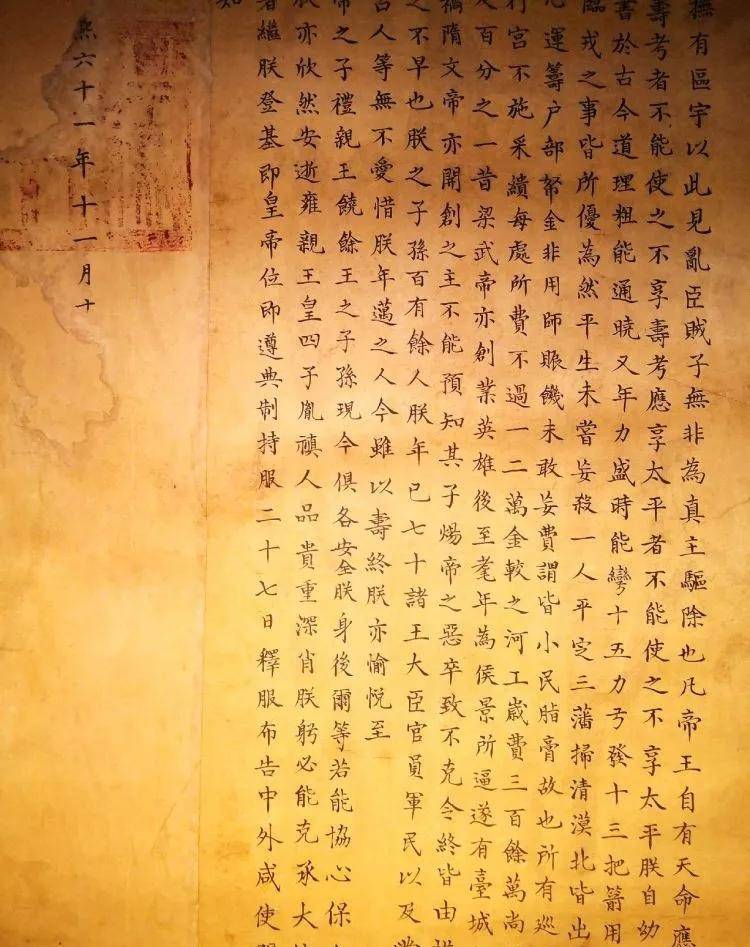 撫有區宇以此見亂臣賊子無非為真主驅除也凡帝王自有天命應
壽考者不能使之不享壽考應享太平者不能使之不享太平朕自幼
書於古今道理粗能通曉又年力盛時能彎十五力弓發十三把箭用
臨戎之事皆所優為然平生未嘗妄殺一人平定三藩掃清漠北皆出
運籌户部帑金非用師賑饑未敢妄費謂皆小民脂膏故也所有巡
行宮不施采繢每處所費不過一二萬金較之河工歲費三百餘萬尚
及百分之一昔梁武帝亦創業英雄後至耄年為侯景所逼遂有臺城
禍隋文帝亦開創之主不能預知其子煬帝之惡卒致不克令終皆由
之不早也朕之子孫百有餘人朕年已七十諸王大臣官員軍民以及
古人等無不愛惜朕年邁之人今雖以壽終朕亦愉悅至
帝之子禮親王饒餘王之子孫現今俱各安全朕身後爾等若能協心保
朕亦欣然安逝雍親王皇四子胤禛人品貴重深肖朕躬必能克承大
著繼朕登基即皇帝位即遵典制持服二十七日釋服布告中外咸使
知
熙六十一年十一月十